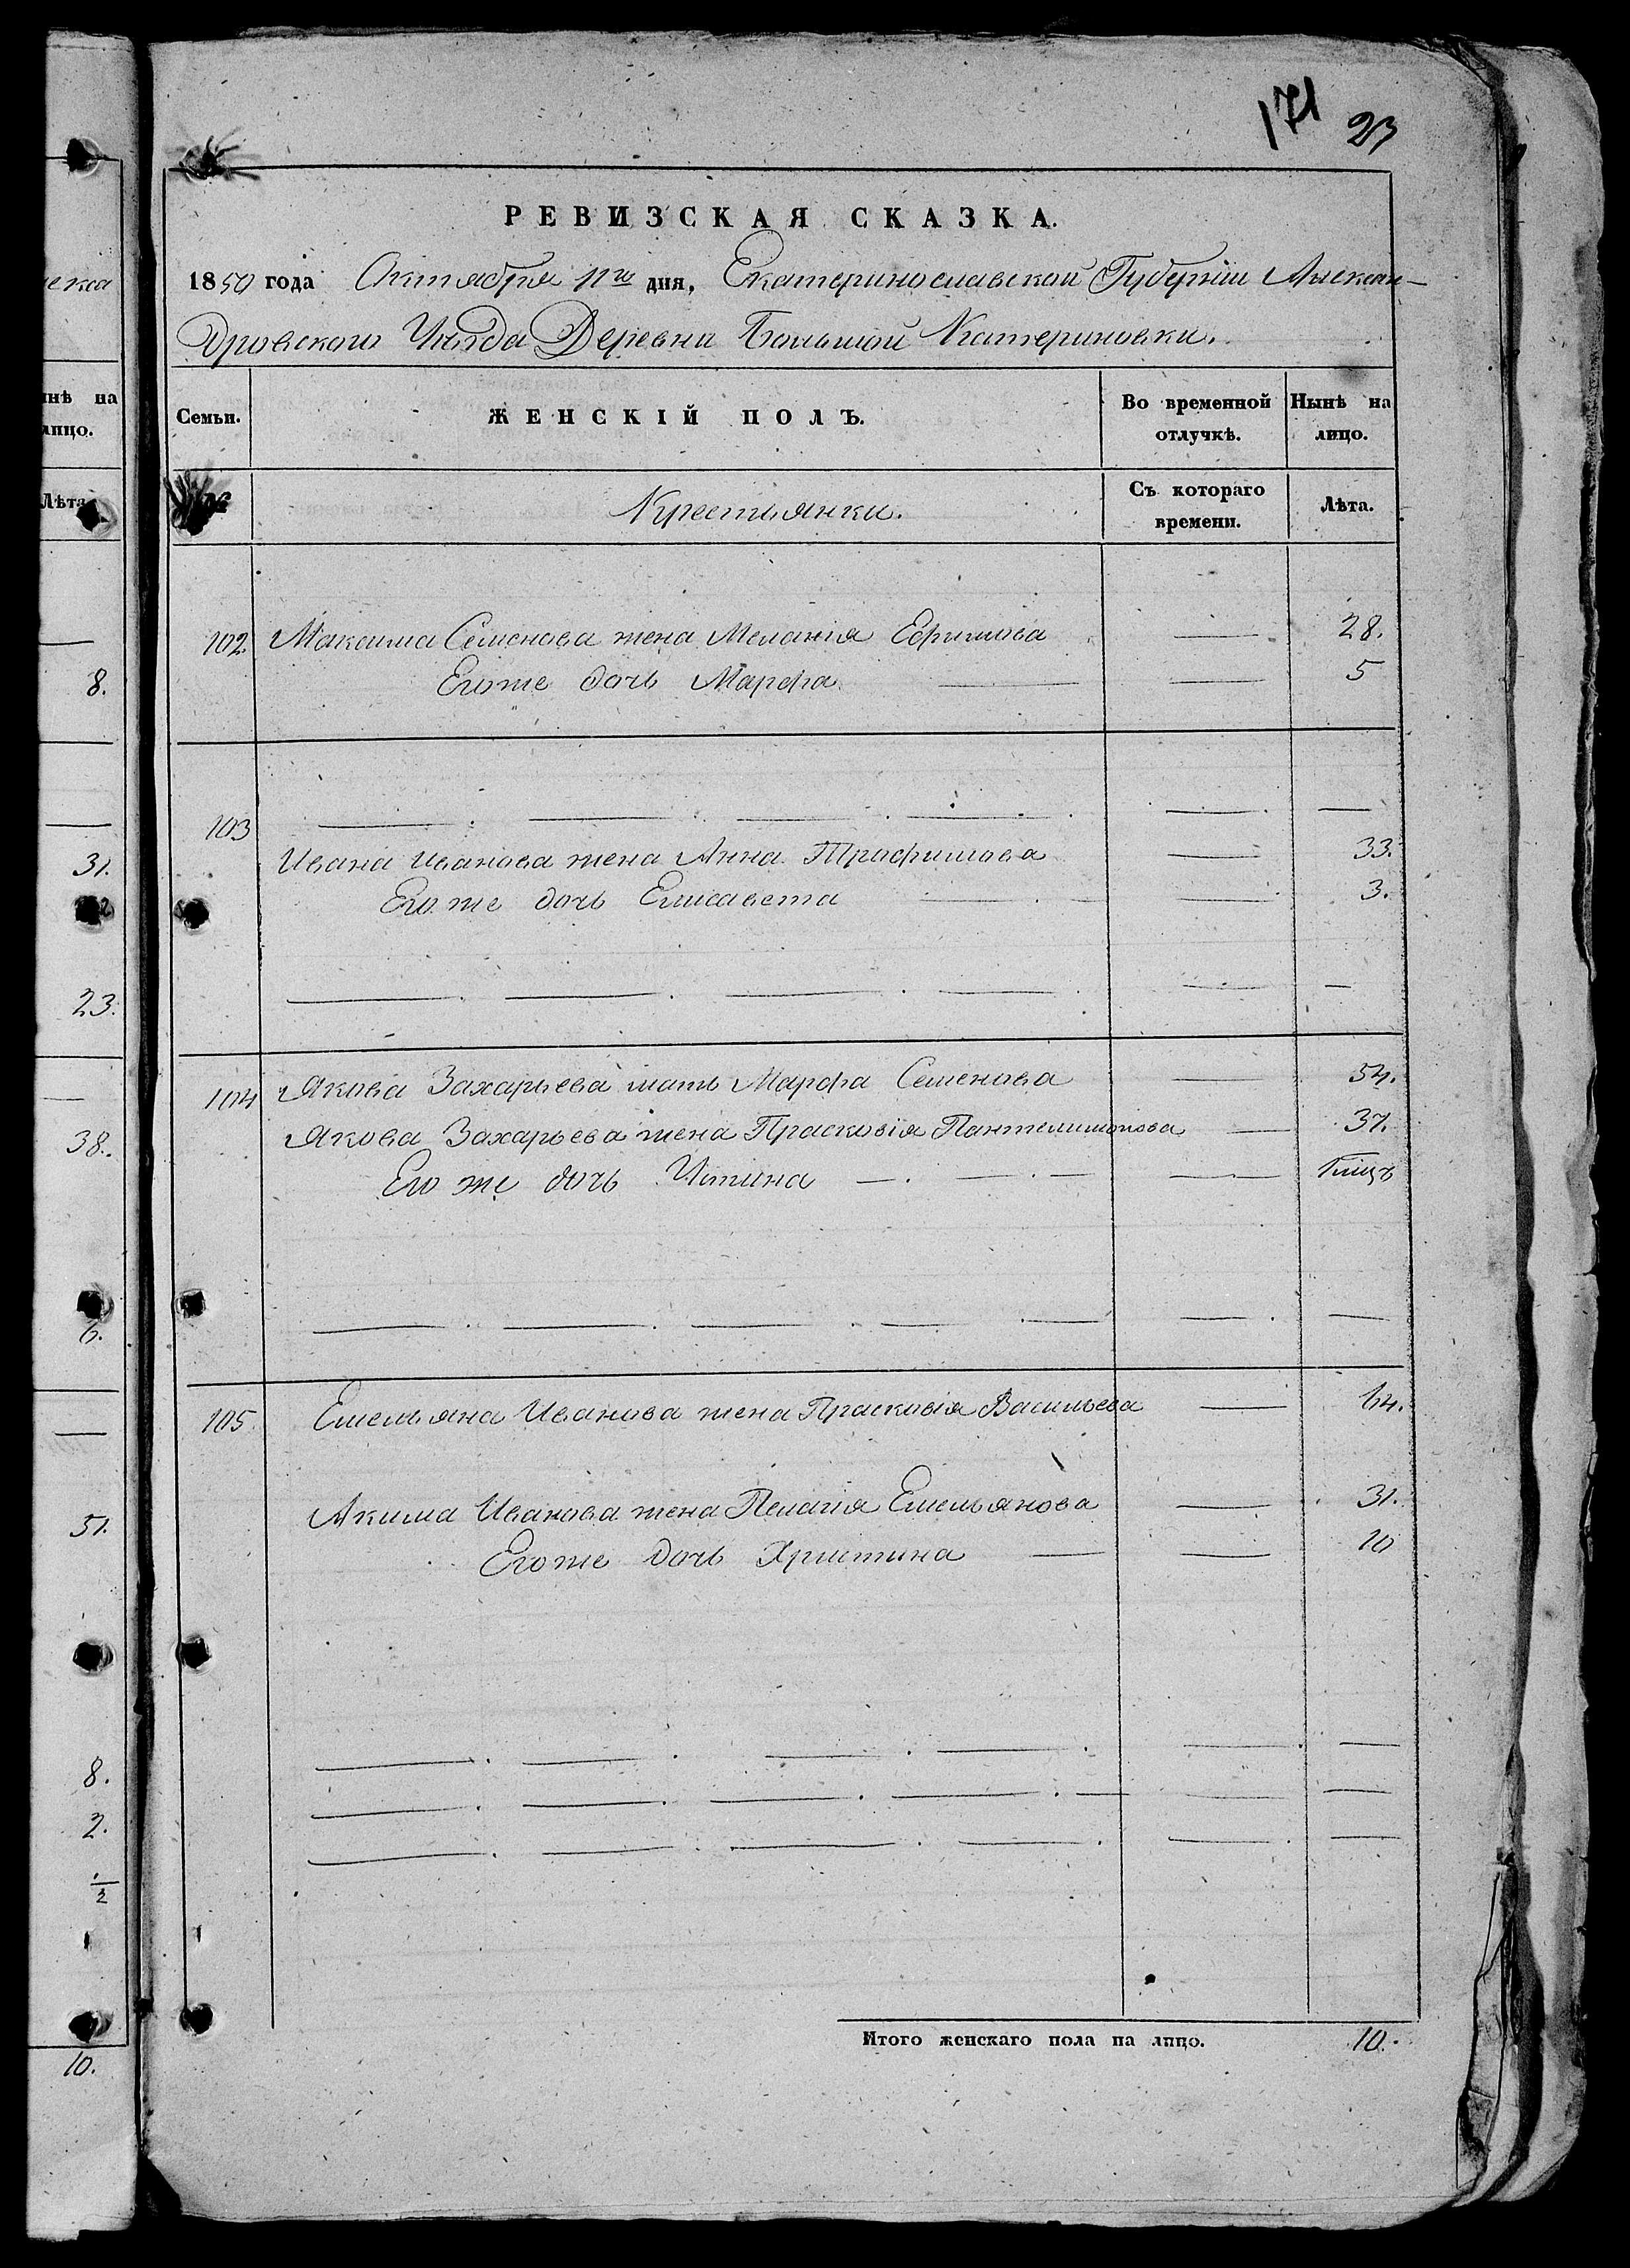 171 23
РЕВИЗСКАЯ СКАЗКА.
1850 года Октября 11го дня, Екатеринославской Губерніи Алексан-
дровского Уѣзда Деревни Большой Катериновки.
Семьи. ЖЕНСКІЙ ПОЛЪ. Во временной отлучкѣ. Нынѣ на лицо.
№ Крестьянки. Съ котораго времени. Лѣта.
102. Максима Семенова жена Меланія Ефимова — 28.
Его же дочь Марфа — — 5
103 — . — . — . — . — . —
Ивана Иванова жена Анна Трофимова — 33.
Его же дочь Елисавета — . — — . 3.
— . — . — . — . — . —
104 Якова Захарьева мать Марфа Семенова — 54.
Якова Захарьева жена Прасковія Пантелимонова — 37.
Его же дочь Устина — . — . — —
— . — . — . — . — — . —
105. Емельяна Иванова жена Прасковія Васильева — 64.
Акима Иванова жена Пелагія Емельянова — 31.
Его же дочь Христина — — 10
— . — . — . — . — . —
— . — . — . — . — — —
— . — . — . — . — . —
Итого женскаго пола на лицо. 10.
екса
нѣ на
лицо.
Лѣта
—
8.
—
31.
23.
—
38.
6.
—
51.
8.
2.
1/2
10.